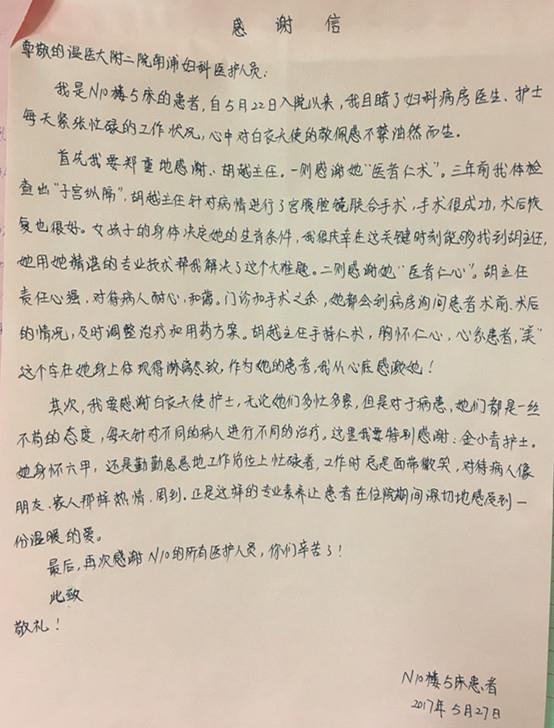 感谢信
尊敬的温医大附二院南浦妇科医护人员:
我是N10楼5床的患者,自5月22日入院以来,我目睹了妇科病房医生、护士
每天紧张忙碌的工作状况,心中对白衣天使的敬佩感不禁油然而生。
首先我要郑重地感谢、胡越主任。一则感谢她“医者仁术”。三年前我体检
查出“子宫纵隔”,胡越主任针对病情进行了宫腹腔镜联合手术,手术很成功,术后恢
复也很好。女孩子的身体决定她的生育条件,我很庆幸在这关键时刻能够找到胡主任,
她用她精湛的专业技术帮我解决了这个大难题。二则感谢她“医者仁心”。胡主任
责任心强,对待病人耐心、和蔼。门诊和手术之余,她都会到病房询问患者术前、术后
的情况,及时调整治疗和用药方案。胡越主任手持仁术,胸怀仁心,心系患者,“美”
这个字在她身上体现得淋漓尽致,作为她的患者,我从心底感激她!
其次,我要感谢白衣天使护士,无论她们多忙多累,但是对于病患,她们都是一丝
不苟的态度,每天针对不同的病人进行不同的治疗。这里我要特别感谢:金小青护士。
她身怀六甲,还是勤勤恳恳地工作岗位上忙碌着,工作时总是面带微笑,对待病人像
朋友、家人那样热情、周到。正是这样的专业素养让患者在住院期间深切地感受到一
份温暖的爱。
最后,再次感谢N10的所有医护人员,你们辛苦了!
此致
敬礼!
N10楼5床患者
2017年5月27日